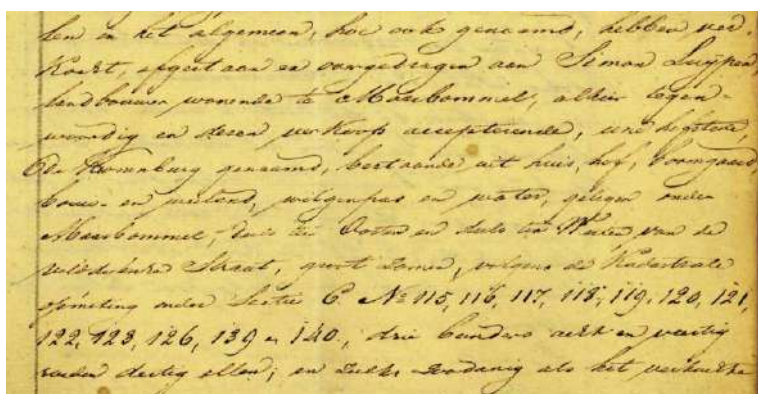 len in het algemeen, hoe ook genaamd, hebben ver-
kocht, afgestaan en overgedragen aan Simon Luijpen,
landbouwer wonende te Maasbommel, alhier tegen-
woordig en dezen verkoop accepterende, eene hofstede,
de Kronenburg genaamd, bestaande uit huis, hof, boomgaard,
bouw- en weiland, wilgenpas en water, gelegen onder
Maasbommel, deels ten Oosten en deels ten Westen van de
Straat, groot zamen, volgens de Kadastrale
opmeting onder Sectie C. No 115, 116, 117, 118, 119, 120, 121,
122, 123, 126, 139 en 140, drie bunders acht en veertig
roeden dertig ellen; en zulks zoodanig als het verkochte